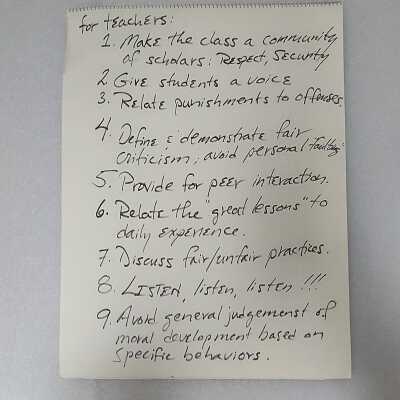 for teachers:
1. Make the class a community
of scholars: Respect, Security
2 Give students a voice
3. Relate punishments to offenses.
4. Define & demonstrate fair
criticism; avoid personal "faulting"
5. Provide for peer interaction.
6. Relate the "great lessons" to
daily experience.
7. Discuss fair/unfair practices.
8. LISTEN, listen, listen !!!
9. Avoid general judgemenst of
moral development based on
specific behaviors.